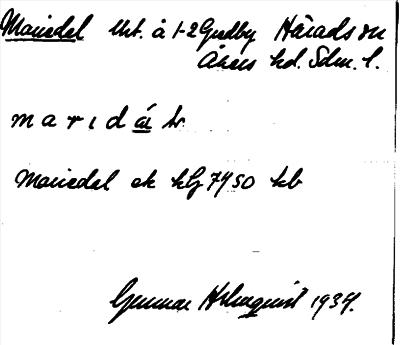 Mariedal Utt. å 1-2 Gredby Härads sn
Åkers hd. Sdm. l.
m a r ı d á tr
Mariedal ek kG 7450 kb
Gunnar Holmquist 1934.